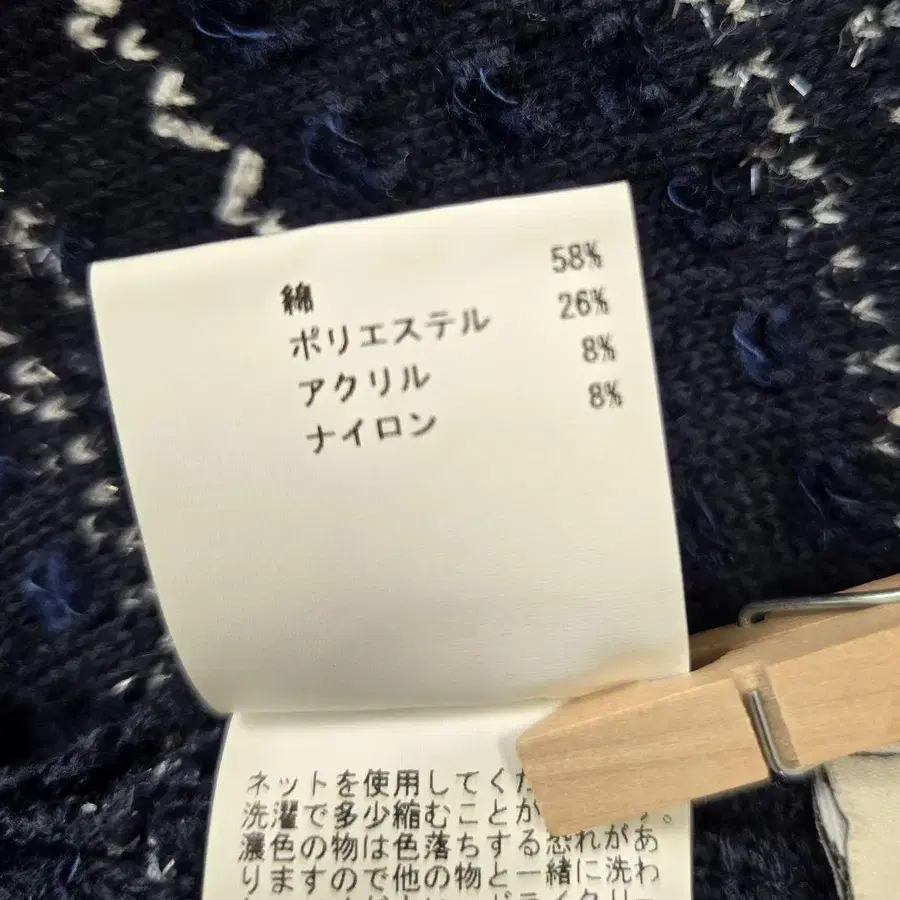 綿 58%
ポリエステル 26%
アクリル 8%
ナイロン 8%
ネットを使用してくだ
洗濯で多少縮むことが す。
濃色の物は色落ちする恐れがあ
りますので他の物と一緒に洗わ
ドライクリー